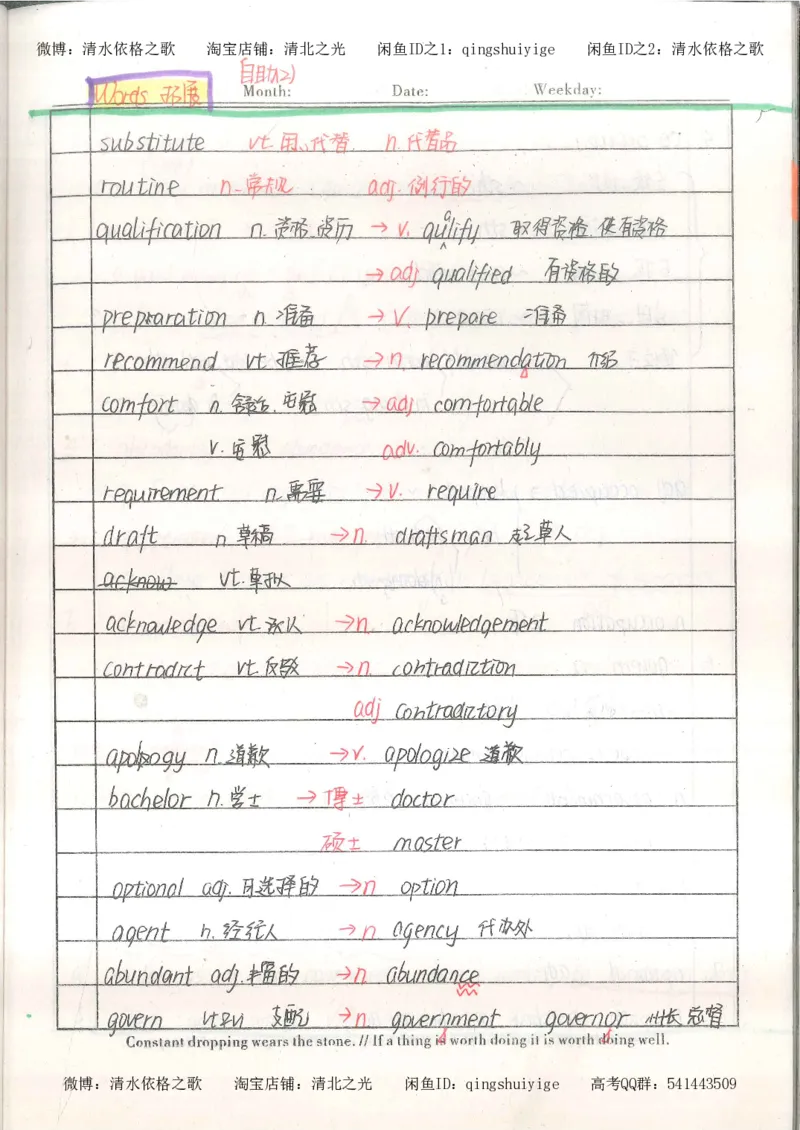 微博：清水依格之歌 淘宝店铺：清北之光 闲鱼ID之1：qingshuiyige 闲鱼ID之2：清水依格之歌
Words 拓展
Month: Date: Weekday:
substitute vt. 用…代替 n. 代替品
routine n. 常规 adj. 例行的
qualification n. 资格.资历 → v. qualify 取得资格.使有资格
→ adj qualified 有资格的
preparation n. 准备 → v. prepare 准备
recommend vt. 推荐 → n. recommendation 介绍
comfort n. 舒适.安慰 → adj comfortable
v. 安慰 adv. comfortably
requirement n. 需要 → v. require
draft n 草稿 → n. draftsman 起草人
acknow vt. 草拟
acknowledge vt. 承认 → n. acknowledgement
contradict vt. 反驳 → n. contradiction
adj contradictory
apology n. 道歉 → v. apologize 道歉
bachelor n. 学士 → 博士 doctor
硕士 master
optional adj. 可选择的 → n option
agent n. 经纪人 → n agency 代办处
abundant adj. 丰富的 → n abundance
govern vt.&vi 支配 → n government governor 州长 总督
Constant dropping wears the stone. // If a thing is worth doing it is worth doing well.
微博：清水依格之歌 淘宝店铺：清北之光 闲鱼ID：qingshuiyige 高考QQ群：541443509